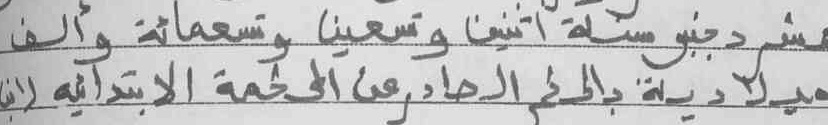 عشر دجنبر سنة اثنين وتسعين وتسعمائة وألف
ميلادية بالحكم الصادر عن المحكمة الابتدائية